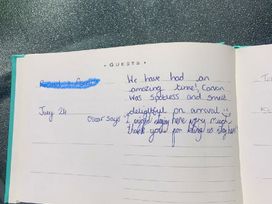 • GUESTS •
We have had an
amazing time! Caravan
was spotless and smelt
July 24 delightful on arrival :)
Oscar says I enjoyed staying here very much
thank you for letting us stay here